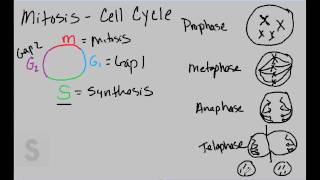 Mitosis - Cell Cycle
Gap 2
M = Mitosis
G2
G1 = Gap 1
S = Synthesis
Prophase
Metaphase
Anaphase
Telophase
S